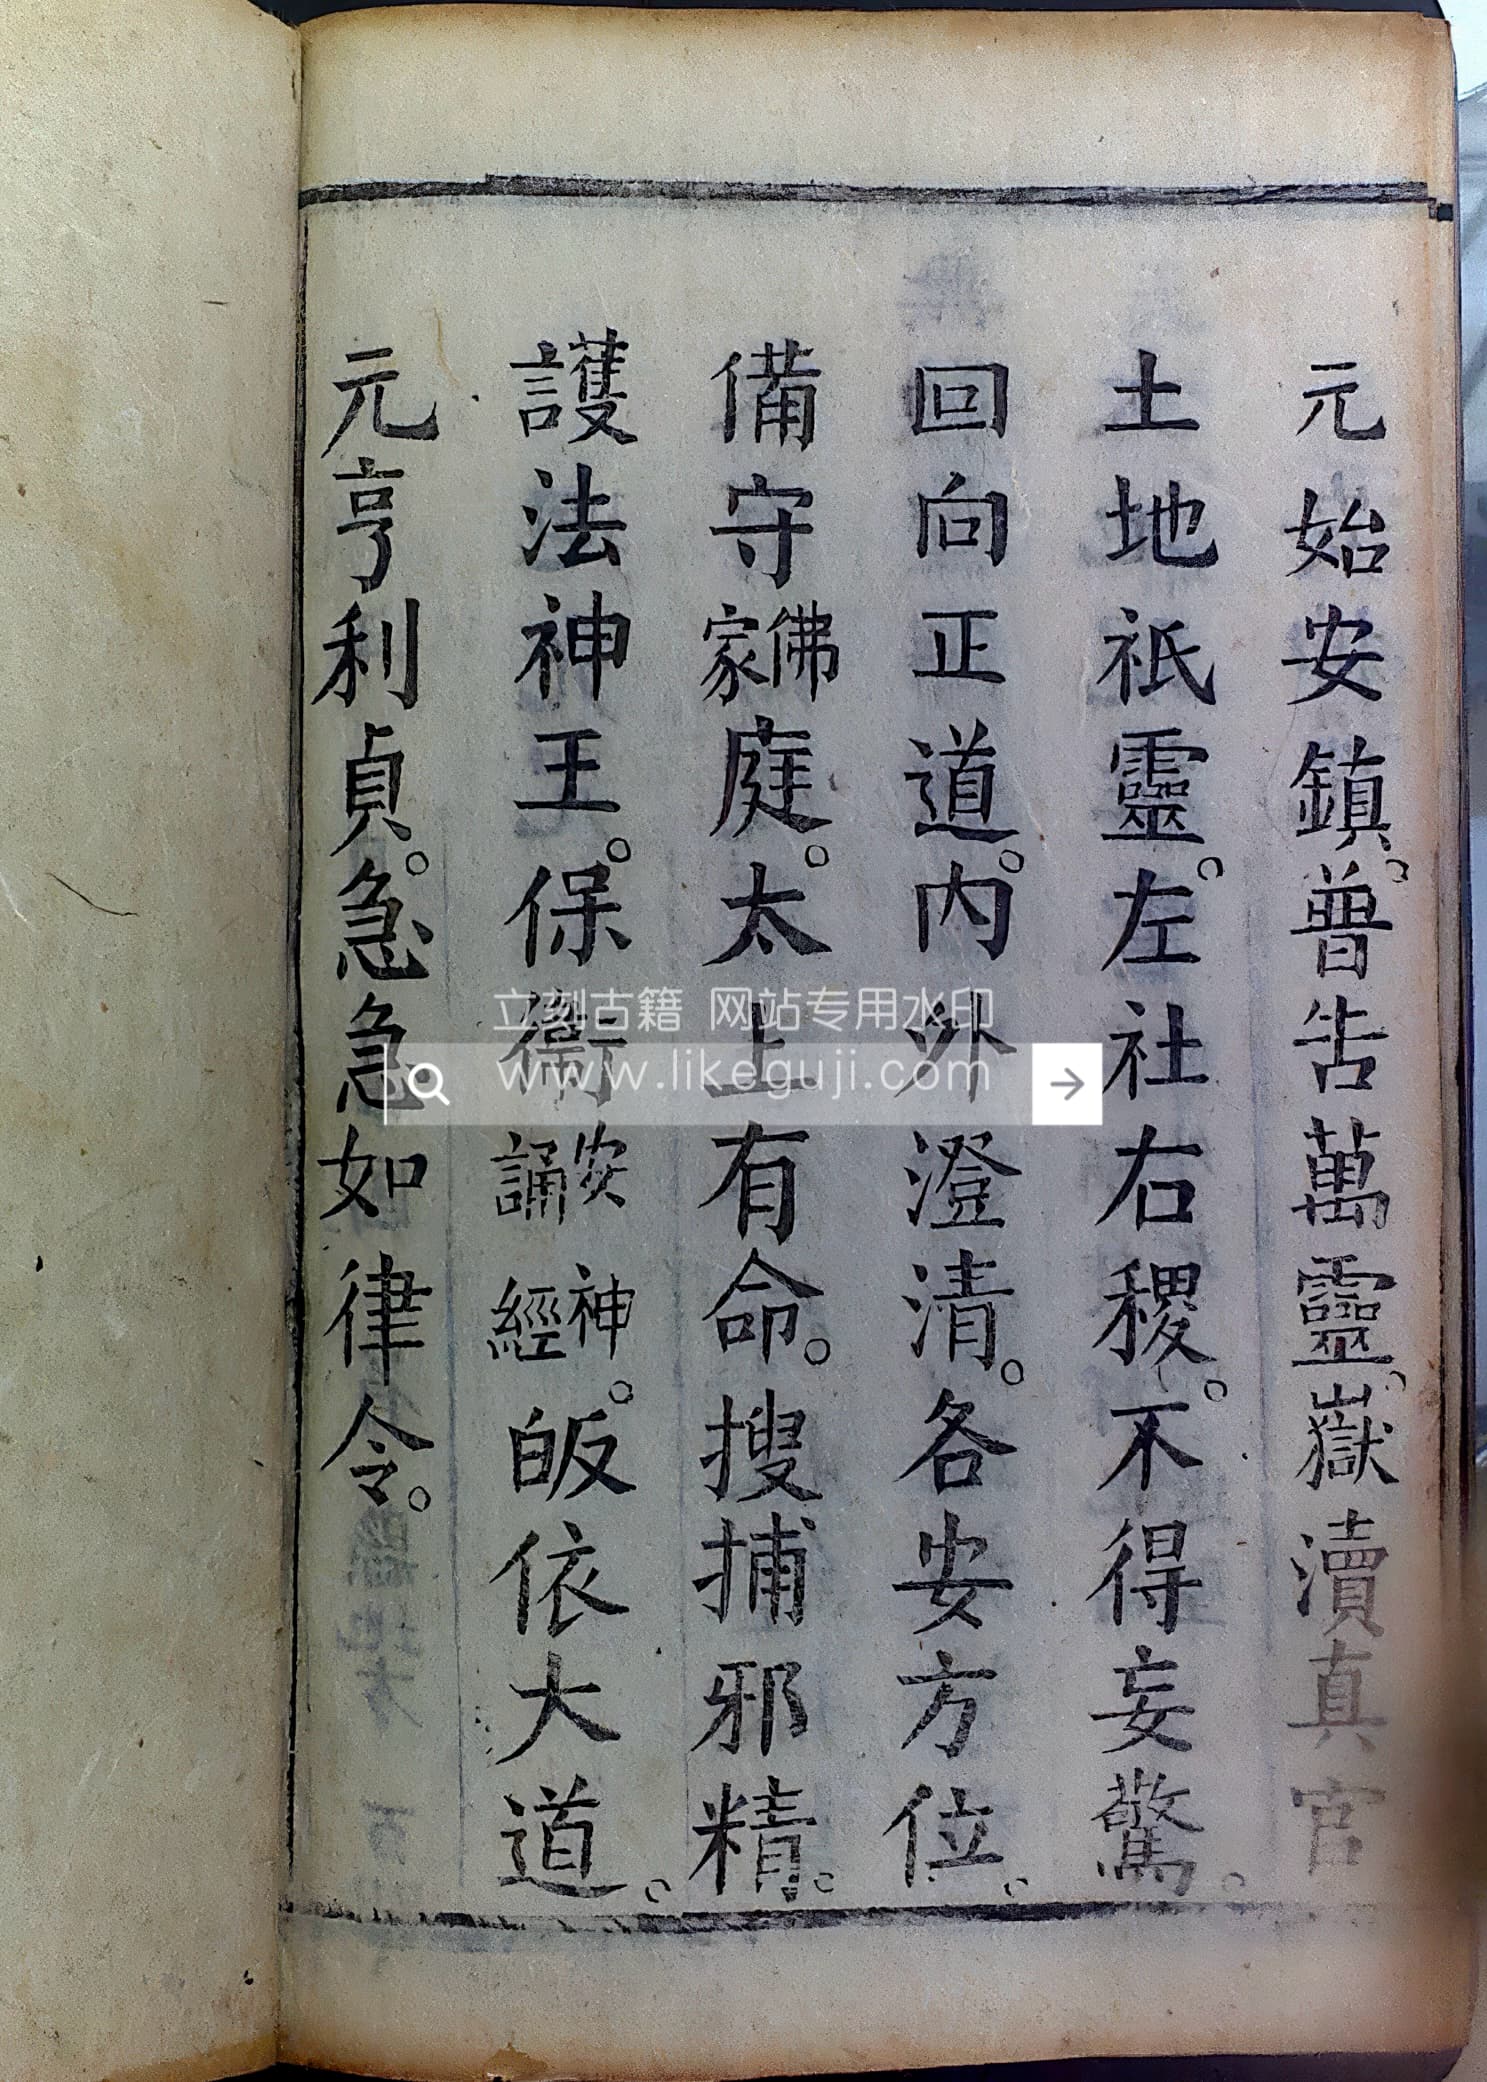 元始安鎮。普告萬靈。嶽瀆真官
土地祇靈。左社右稷。不得妄驚。
回向正道。內外澄清。各安方位。
備守佛家庭。太上有命。搜捕邪精。
護法神王。保衛安神誦經。皈依大道。
元亨利貞。急急如律令。
立刻古籍 网站专用水印
www.likeguji.com